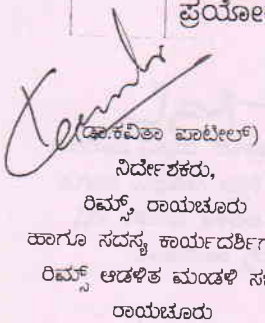 ಪ್ರಯೋ
(ಡಾ.ಕವಿತಾ ಪಾಟೀಲ್)
ನಿರ್ದೇಶಕರು,
ರಿಮ್ಸ್, ರಾಯಚೂರು
ಹಾಗೂ ಸದಸ್ಯ ಕಾರ್ಯದರ್ಶಿಗ
ರಿಮ್ಸ್ ಆಡಳಿತ ಮಂಡಳಿ ಸ
ರಾಯಚೂರು